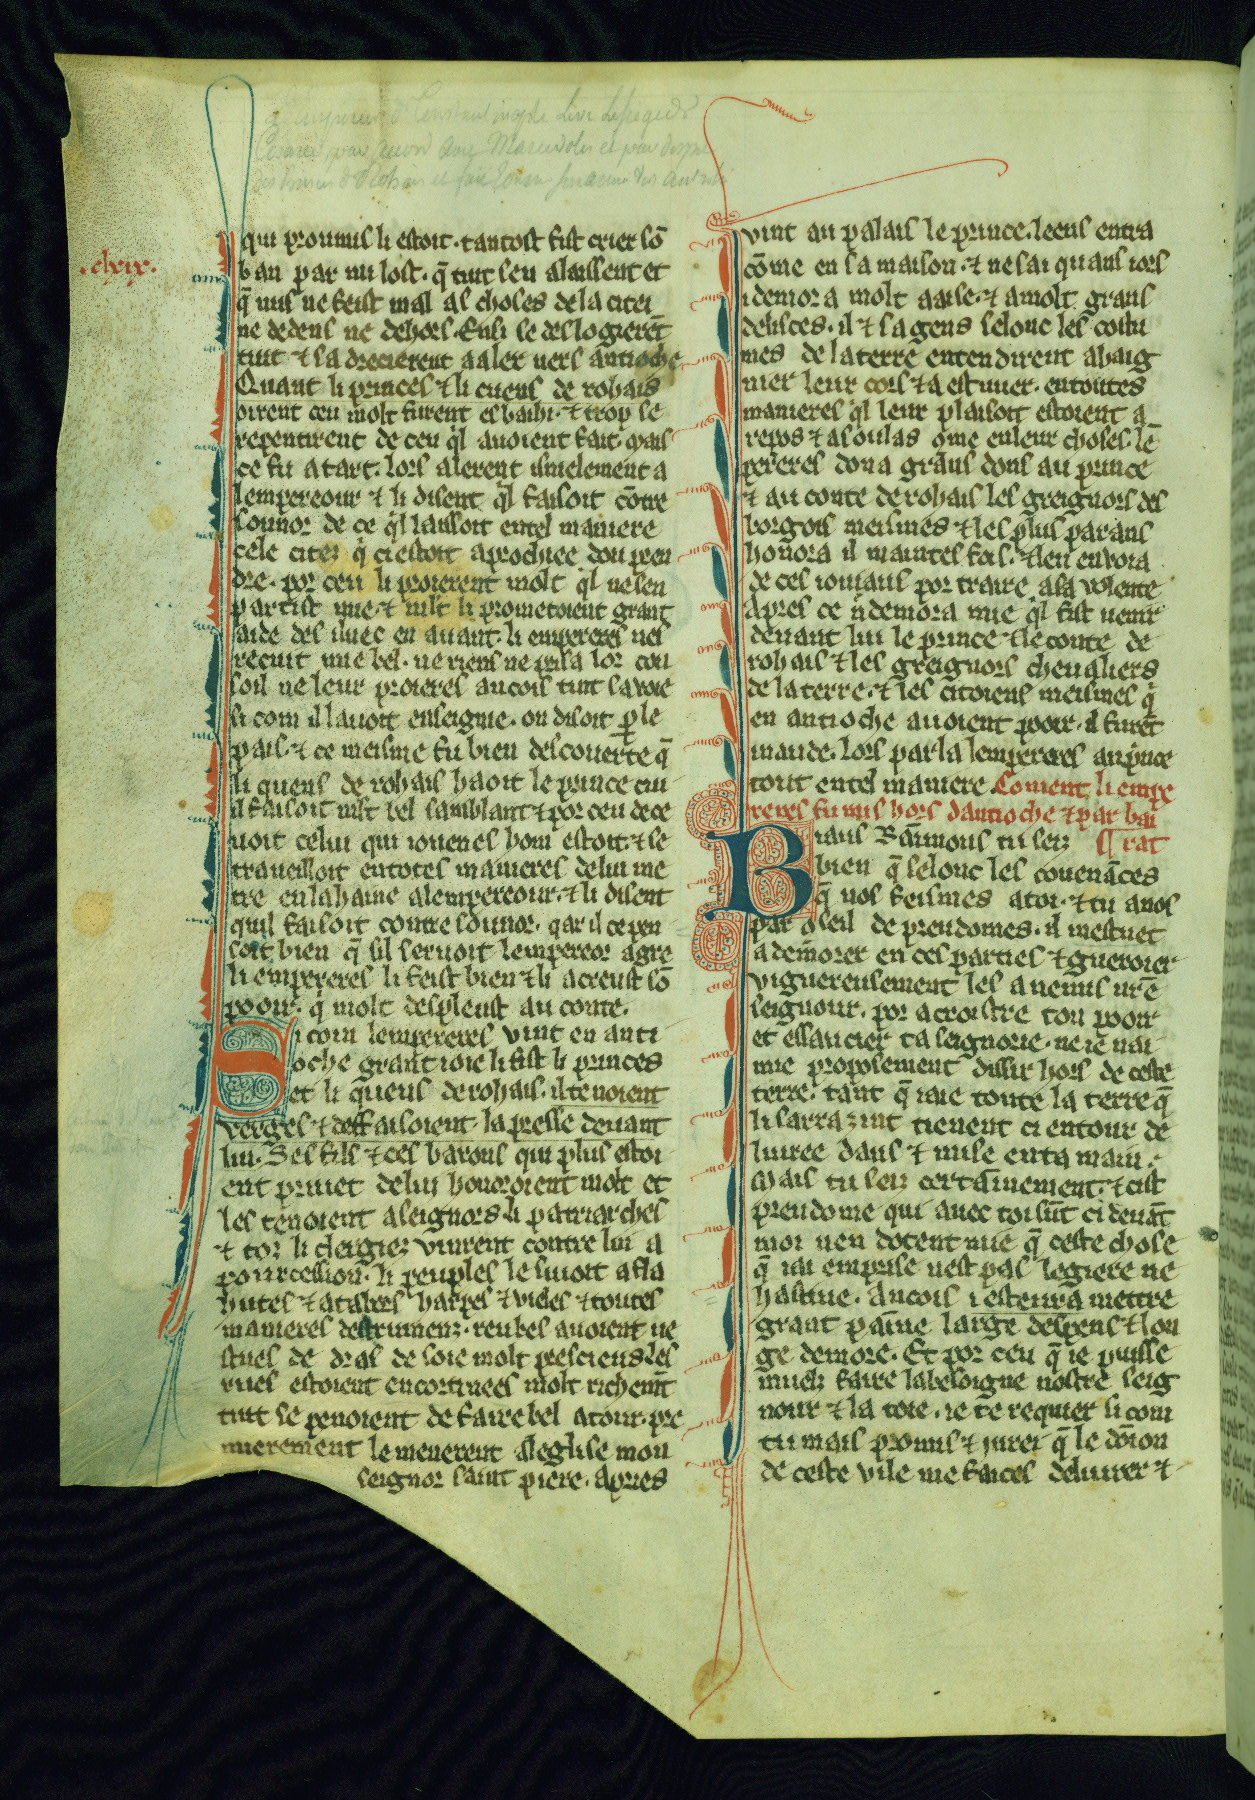 .clxix.
qui promis li estoit. tantost fist crier sō
ban par mi lost. q̄ tuit sen alassent et
q̄ nus ne feist mal as choses de la citei
ne dedens ne dehors. Ensi se deslogierēt
tuit ⁊ sa drecierent a aler uers antioche
Quant li princes ⁊ li cuens de rohais
oirent ceu molt furent esbaihi. ⁊ trop se
repentirent de ceu q̄l auoient fait. mais
ce fu a tart. lors alerent isnelement a
lempereour ⁊ li disent q̄l faisoit cōtre
sounor de ce q̄l laissoit entel maniere
cele citei q̄ si estoit aprochiee dou pren
dre. por ceu li proierent molt q̄l ne sen
partist mie. ⁊ mlt li prometoient grant
aide des iluec en auant. li empereres nel
recuit mie bel. ne riens ne prisa lor con
soil ne leur proieres ancois tint sa uoie
si com il lauoit enseigne. on disoit p̱ le
pais. ⁊ ce meisme fu bien descouerte q̄
li quens de rohais haoit le prince cui
il faisoit mlt bel samblant ⁊ por ceu dece
uoit celui qui iouenes hom estoit. ⁊ se
traueilloit en totes manieres de lui me
tre en la haine a lempereour. ⁊ li disent
quil faisoit contre sounor. qar il ce pen
soit bien q̄ sil seruoit lempereor a gre
li empereres li feist bien ⁊ li acreust sō
pooir. q̄ molt despleust au conte.
Si com lempereres vint en anti
oche grant ioie li fist li princes
et li q̄uens de rohais. il tenoient
verges ⁊ deffaisoient la presse deuant
lui. Ses fils ⁊ ces barons qui plus estoi
ent priuet de lui honoroient molt et
les tenoient a seignors. li patriarches
⁊ toz li clergiez vinrent contre lui a
pourcession. li peuples le siuoit a fla
hutes ⁊ a tabors harpes ⁊ vieles ⁊ toutes
manieres destrumenz. reubes auoient ue
stues de dras de soie molt prescieus. les
rues estoient encortinees molt richemt̄
tuit se penoient de faire bel atour. pre
mierement le menerent a leglise mon
seignor saint piere. apres
vint au palais le prince. leens entra
cōme en sa maison. ⁊ ne sai quans iors
i demora molt aaise. ⁊ a molt grans
delisces. il ⁊ sa gens selonc les costu
mes de la terre entendirent a baig
nier leur cors ⁊ a estuuer. en toutes
manieres q̄l leur plaisoit estoient a
repos ⁊ a soulas ome en leur choses. lē
pereres dona grans dons au prince
⁊ au conte de rohais les greignors des
borgois meismes ⁊ les plus parans
honora il maintes fois. ⁊ len enuoia
de ces ioiaus por traire a sa volente
Apres ce ñ demora mie q̄l fist uenir
deuant lui le prince ⁊ le conte de
rohais ⁊ les greignors cheualiers
de la terre. ⁊ les citoiens meismes q̄
en antioche auoient pooir. il furēt
mande. lors parla lempereres au p̄nce
tout entel maniere. Coment li empe
reres fu mis hors dantioche ⁊ par bai
Biaus Baimons tu seiz ¶ rat
bien q̄ selonc les couenāces
q̄ nos feismes a toi. ⁊ tu a nos
par ꝯseil de preudomes. il mestuet
a demorer en ces parties ⁊ gueroier
viguereusement les anemis nr̄e
seignour. por acroistre ton pooir
et essaucier ta seignorie. ne ie nai
mie proposement dissir hors de ceste
terre. tant q̄ iaie toute la terre q̄
li sarrazint tienent ci entour de
liuree dans ⁊ mise en ta main.
Mais tu seiz certainement. ⁊ cist
preudome qui auec toi sūt ci deuāt
moi nen dotent mie q̄ ceste chose
q̄ iai emprise nest pas legiere ne
hastiue. Ancois i esteura mettre
grant paīne large despens ⁊ lon
ge demore. Et por ceu q̄ ie puisse
miels faire la besoigne nostre seig
nour ⁊ la toie. ie te requier si com
tu mais promis ⁊ iurei q̄ le dōion
de ceste vile me faces deliurer ⁊